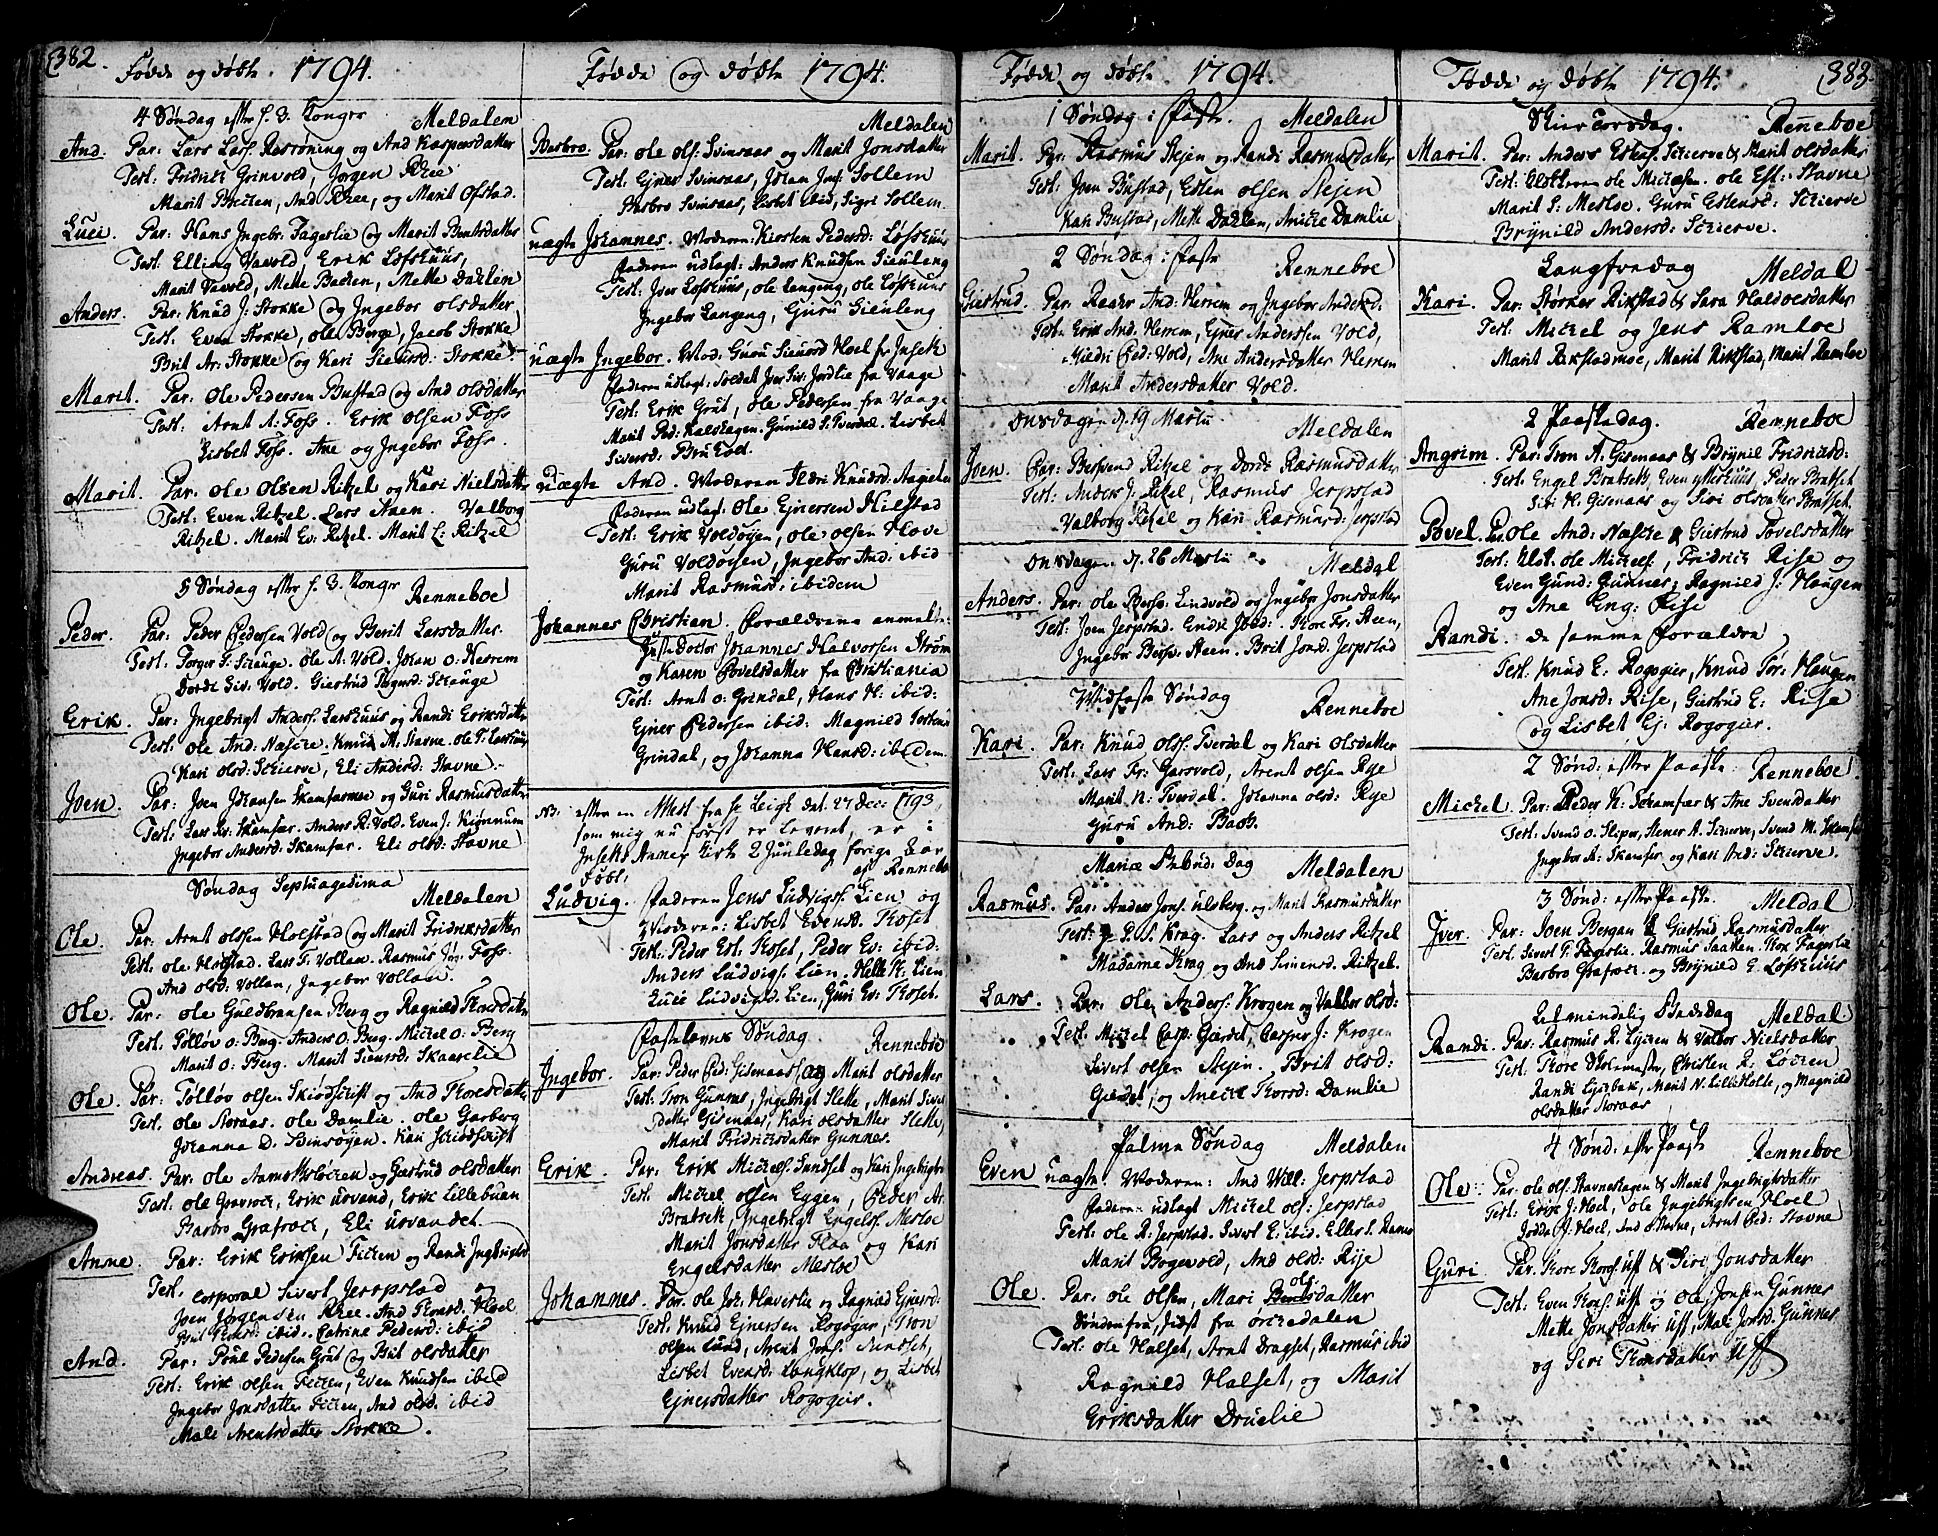 382.
Fødde og døbte 1794.
4 Søndag efter h. 3. Konger Meldalen
And. Par: Lars Lars. Resrøning og And Kaspersdatter
Test: Fridrich Grinvold, Jørgen Rhee
Marit Bræten, And Rhee, og Marit Ofstad.
Luci. Par: Hans Ingebr: Fagerlie og Marit Bentsdatter
Test: Elling Vavold, Erik Løfshuus,
Marit Vavold, Mette Bælen, Mette Dahlen
Anders. Par: Knud J: Stokke og Ingebor olsdatter
Test: Even Stokke, ole Berge, Jacob Stokke
Brit Ar: Stokke og Kari Sieurd: Stokke
Marit. Par. Ole Pedersen Bustad og And olsdatter
Test: Arnt A: Foss. Erik olsen Foss
Lisbet Foss. Ane og Ingebor Foss.
Marit. Par. Ole Olsen Ritzel og Kari Nielsdatter
Test: Even Ritzel. Lars Aaen. Valborg
Ritzel. Marit Ev: Ritzel. Marit L: Ritzel
5 Søndag efter h. 3. Kongr Renneboe
Peder. Par: Peder Pedersen Vold og Berit Larsdatter.
Test: Torger S: Skauge. Ole A: Vold. Johan O: Herrem
Dordi Siv: Vold. Giertrud Torgersd: Skauge
Erik. Par: Ingebrigt Anders: Larshuus og Randi Eriksdatter
Test: Ole And: Næsche. Knud A. Stavne. ole T. Larshuus
Kari olsd: Schierve, Eli Andersd: Stavne.
Joen. Par: Joen Johansen Skamfærmoe og Guri Rasmusdatter
Test: Lars Kr: Skamfær. Anders R: Vold. Even J: Kignnum
Ingebor Andersd: Skamfær. Eli olsd: Stavne
Søndag Septuagesima Meldalen
Ole. Par: Arnt olssen Holstad og Marit Fridriksdatter
Test: ole Holstad. Lars T: Vollan. Rasmus Jog: Foss.
And olsd: Vollan, Ingebor Vollan.
Ole. Par: ole Guldbransen Berg og Ragnild Thoresdatter
Test. Tølløv O: Berg. Anders O: Berg. Michel O: Berg
Marit O: Berg. Marit Sieursd: Skaarelie
Ole. Par: Tølløv olsen Skiødskift og And Thoresdatter
Test. ole Noraas. ole Damlie. ole Garberg
Johanna D. Binsøyen. Kari Skiødskift
Andreas. Par: Ole Aarnotsløkken og Giertrud olsdatter
Test. ole Gravrock, Erik Usvand, Erik Lillebuan
Barbro Grafrock, Eli Usvandet.
Anne. Par: Erik Eriksen Ficken og Randi Ingebrigtsd
Test. corporal Sivert Jerpstad og
Joen Jørgensen Rhee. And Thorsd: Hoel
Brit Thorsd: ibid. Catrine Pedersd: ibid
And. Par: Poul Pedersen Grüt og Brit olsdatter
Test: Erik olsen Ficken, Even Knudsen ibid
Ingebor Jonsdatter Ficken, And olsd: ibid
Mali Arentsdatter Stokke.
Fødde og døbte 1794.
Meldalen
Barbro. Par: Ole ols: Svinsaas og Marit Jonsdatter
Test: Ejner Svinsaas, Johan Ing: Sollem
Barbro Svinsaas, Lisbet ibid, Sigri Sollem.
uægte Johannes. Moderen: Kirsten Pedersd: Løfshuus
Faderen udlagt: Anders Knudsen Gienleng
Test: Iver Løfshuus, ole Langeng, ole Løfshuus
Ingebor Langeng, Guru Gienleng
uægte Ingebor. Mod: Guru Sieursd Hoel fr Insets
Faderen udlagt: Soldat Iver Siv: Jordlie fra Vaage
Test: Erik Grut, ole Pedersen fra Vaage
Marit Ped: Kalshagen. Gunild S: Sverdal. Lisbet
Siversd:
uægte And. Moderen Ildri Knudsd. Aagielen
Faderen udlagt: Ole Ejnersen Hielstad
Test: Erik Voldøyen, ole olsen Hove
Guru Voldøyen, Ingebor And: ibid
Marit Rasmusd: ibidem
Johannes Christian. Forældrene anmeldte
Johannes Halvorsen Strøm
og Karen Povelsdatter fra Christiania
Test: Arnt O: Grindal, Hans H: ibid:
Ejner Pedersen ibid: Magnild
Grindal, og Johanna Hansd: ibidem.
NB: efter en Attest fra hr Leigh dat. 27 Dec: 1793,
som mig nu først er leveret, er i
Insets Annex Kirke 2 Juuledag forige Aar
døbt: af Renneboe
Ludvig. Faderen Jens Ludvigs: Lien og
Moderen: Lisbet Evensd. Thoset
Test: Peder Est: Thoset, Peder Ev: ibid:
Anders Ludvigs: Lien. Helle K: Lien
Lucie Ludvigsd: Lien, Guri Ev: Thoset.
Fastelavns Søndag Renneboe
Ingebor. Par: Peder Ped: Gisenaas og Marit olsdatter
Test: Tron Gunnes, Ingebrigt Slette, Marit Sivers
datter Gisenaas, Kari olsdatter Slette,
Marit Fridrichsdatter Gunnes.
Erik. Par: Erik Michels: Sundset og Kari Ingebrigtsd
Test: Michel olsen Eggen, Peder Ar:
Bratset, Ingebrigt Engels: Mesloe
Marit Jonsdatter Flaa og Kari
Engelsdatter Mesloe
Johannes. Par. Ole Joh: Haverslie og Ragnild Ejnersd:
Test. Knud Ejnersen Rogogier, Tron
olsen Lund, Arent Jons: Sundset,
Lisbet Evensd: Langklop, og Lisbet
Ejnersdatter Rogogier.
Fødde og døbte 1794.
1 Søndag i Faste. Meldalen
Marit. Par: Rasmus Stejen og Randi Rasmusdatter
Test: Joen Bustad, Esten olsen Stejen
Kari Bustad, Mette Dahlen, Aniche Damlie
2 Søndag i Faste Renneboe
Giertrud. Par. Raaer And: Herrem og Ingebor Andersd:
Test. Erik And: Herrem, Ejner Anderssen Vold,
Siedri Ped: Vold, Ane Andersdatter Herrem
Marit Andersdatter Vold.
Onsdagen d. 19 Martii Meldalen
Joen. Par: Berssvend Ritzel og Dordi Rasmusdatter
Test: Anders J: Ritzel, Rasmus Jerpstad
Valborg Ritzel og Kari Rasmusd: Jerpstad
Onsdagen d. 26 Martii Meldal
Anders. Par: Ole Bersv: Lindvold og Ingebor Jonsdatter
Test: Joen Jerpstad. Endre ibid: Thore Fr: Steen,
Ingebor Bersv: Steen. Brit Jonsd: Jerpstad
Midfaste Søndag Renneboe
Kari. Par: Knud ols: Tverdal og Kari olsdatter
Test: Lars Fr: Garsvold, Arent olsen Rye
Marit N: Tverdal. Johanna olsd: Rye
Guru And: Baob.
Mariæ Bebud: Dag Meldalen
Rasmus. Par: Anders Jons: Ulsberg og Marit Rasmusdatter
Test: P. S. Krag. Lars og Anders Ritzel
Madame Krag og And Simensd: Ritzel.
Lars. Par: ole Anders: Krogen og Valbor olsd:
Test: Michel Casp: Giærdet, Casper J: Krogen
Sivert olsen Stejen. Brit olsd:
Giærdet, og Aniche Thorsd: Damlie
Palme Søndag Meldalen
Even uægte. Moderen: And Will: Jerpstad
Faderen udlagt Michel ols: Jerpstad
Test: ole R: Jerpstad. Sivert E: ibid. Ellev S. Ramo
Marit Bogevold, And olsd: Rije
Ole. Par: ole Olsen, Mari ols:datter
Søndenfra, sidst fra Orchedalen
Test: ole Halset, Arnt Dragset, Rasmus ibid
Ragnild Halset, og Marit
Eriksdatter Druelie
383.
Fødde og døbte 1794.
Skier Torsdag. Renneboe
Marit. Par: Anders Estens: Schierve & Marit olsdatter
Test: Klokkeren ole Michelsen. ole Est: Stavne
Marit S: Mesloe. Guru Estensd: Schierve
Brynild Andersd: Schierve.
Langfredag Meldal
Kari. Par: Størker Rikstad & Sara Haldoesdatter
Test: Michel og Jens Ramloe
Marit Rikstadmoe, Marit Rikstad, Marit Ramloe
2 Paaskedag. Renneboe
Angrim. Par: Tron A: Gisenaas & Brynil Fridrichsd:
Test: Engel Bratset, Even Mærkhuus, Peder Bratset
Siri H: Gisenaas og Siri olsdatter Bratset.
Povel. Par. Ole And: Næsche & Giertrud Povelsdatter
Test: Klok. ole Michels:, Fridrich Rise og
Even Gund: Gunnes, Ragnild J: Haugen
og Ane Eng: Rise
Randi. de samme Forældre
Test. Knud E: Rogogier, Knud Tor: Haugen
Ane Jonsd: Rise, Giertrud E: Rise
og Lisbet Ej: Rogogier.
2 Sønd: efter Paaske. Renneboe
Michel. Par: Peder K: Skamfær & Ane Svensdatter
Test. Svend O: Sliper, Stener A. Schierve, Svend M: Skamfer
Ingebor A: Skamfer og Kari And: Schierve.
3 Sønd: efter Paaske. Meldal
Jver. Par: Joen Bergan & Giertrud Rasmusdatter
Test. Sivert F: Fagerlie. Rasmus Saatten. Thore Fagerlie
Barbro Grafrock. og Brynild E: Løfshuus
Almindelig Bededag Meldal
Randi. Par: Rasmus R. Lycken & Valbor Nielsdatter
Test: Thore Stolemaster, Christen R. Løcken
Randi Giersbak, Marit N. Lilleholte, og Magnild
olsdatter Noraas
4 Sønd: efter Paaske Renneboe
Ole. Par: ole ols: Stavneshagen & Marit Ingebrigtsdatter
Test: Erik J: Hoel, ole Ingebrigtsen Hoel
Hoel, And Stavne, Arnt Ped: Stavne
Guri. Par. Thore Thoes: Uff & Siri Jonsdatter
Test: Even Thoes: Uff og ole Jonsen Gunnes
Mette Jonsdatter Uff, Mali Jonsd: Gunnes
og Siri Thoesdatter Uff